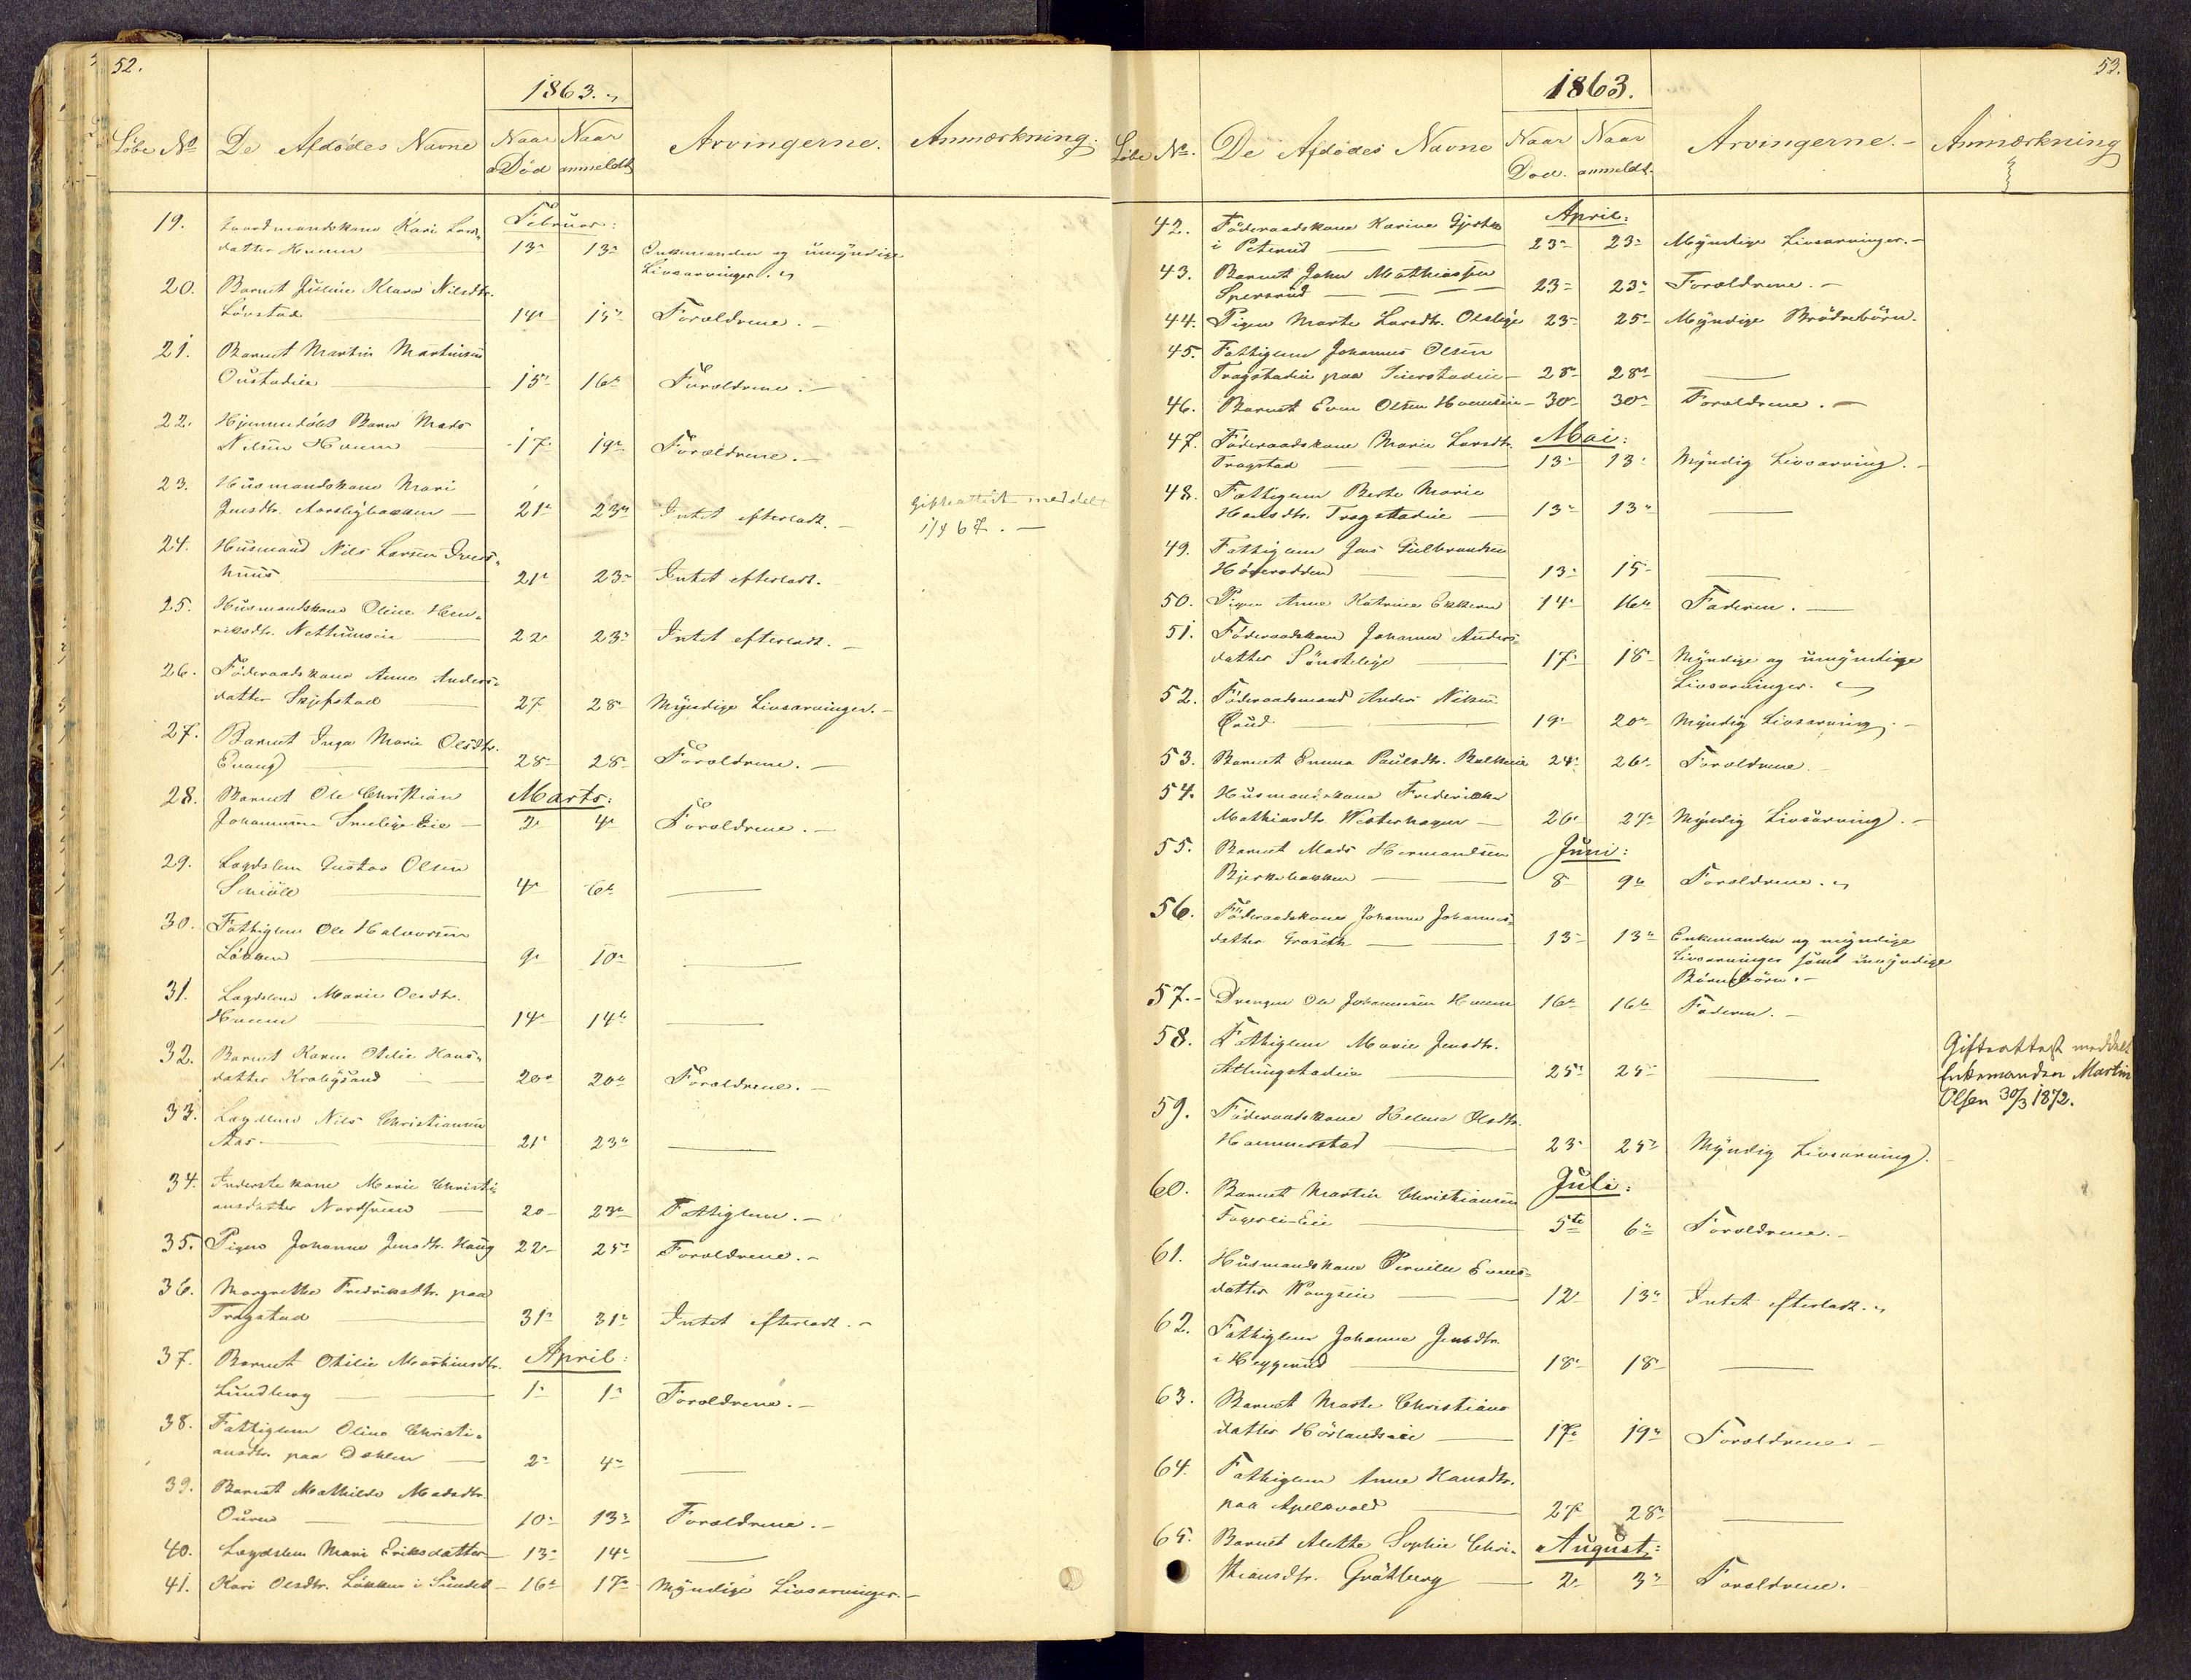 52.
1863.
Löbe No De Afdödes Navne Naar Död Naar anmeldt Arvingerne. Anmærkning.
Februar:
19. Gaardmandskone Kari Lars-
datter Hveem 13 13 Enkemanden og umyndige
Livsarvinger.
20. Barnet Juline Klara Nilsdtr.
Lövstad 14 15 Forældrene.
21. Barnet Martin Martinsen
Oustadeie 15 16 Forældrene.
22. Hjemmedöbt Barn Mads
Nilsen Hveem 17 19 Forældrene.
23. Husmandskone Mari
Jensdtr. 21 23 Intet efterladt. Gifteattest meddelt
1/4 67.
24. Husmand Nils Larsen
huus 21 23 Intet efterladt.
25. Husmandskone Oline Hen-
riksdtr. 22 23 Intet efterladt.
26. Föderaadskone Anne Anders-
datter Skjefstad 27 28 Myndige Livsarvinger.
27. Barnet Inga Marie Olsdtr.
Evang 28 28 Forældrene.
Marts:
28. Barnet Ole Christian
Johannesen Smeby Eie 2 4 Forældrene.
29. Lægdslem Gustav Olsen
4 6
30. Fattiglem Ole Halvorsen
Lökken 9 10
31. Lægdslem Marie Olsdtr.
Hveem 14 14
32. Barnet Karen Otilie Hans-
datter 20 20 Forældrene.
33. Lægdslem Nils Christiansen
Aas 21 23
34. Inderstekone Marie Christi-
ansdatter 20 23 Fattiglem.
35. Pigen Johanne Jensdtr. Haug 22 25 Forældrene.
36. Margrethe Fredriksdtr. paa
Tragstad 31 31 Intet efterladt.
April:
37. Barnet Otilie Mathiasdtr.
Lundberg 1 1 Forældrene.
38. Fattiglem Oline Christi-
ansdtr. paa Dahlen 2 4
39. Barnet Mathilde Madsdtr.
Ouren 10 13 Forældrene.
40. Lægdslem Mari Eriksdatter 13 14
41. Kari Olsdtr. Lökken i Sundet 16 17 Myndige Livsarvinger.
53.
1863.
Löbe No. De Afdödes Navne Naar Död. Naar anmeldt. Arvingerne. Anmærkning
April:
42. Föderaadskone Karine
i Peterud 23 23 Myndige Livsarvinger.
43. Barnet John Mathiassen
Spersrud 23 23 Forældrene.
44. Pigen Marte Larsdtr. 23 25 Myndige Brödrebörn.
45. Fattiglem Johannes Olsen
Tragstadeie paa 28 28
46. Barnet Even Olsen Hveemseie 30 30 Forældrene.
Mai:
47. Föderaadskone Marie Larsdtr.
Tragstad 13 13 Myndig Livsarving.
48. Fattiglem Berthe Marie
Hansdtr. Tragstadeie 13 13
49. Fattiglem Jens Gulbrandsen
13 15
50. Pigen Anne Katrine Ekkern 14 16 Faderen.
51. Föderaadskone Johanne Anders-
datter 17 18 Myndige og umyndige
Livsarvinger.
52. Föderaadsmand Anders Nilsen
19 20 Myndig Livsarving.
53. Barnet Emma Paulsdtr. Balkeeie 24 26 Forældrene.
54. Husmandskone Fredrikke
Mathiasdtr. Westerhagen 26 27 Myndig Livsarving.
Juni:
55. Barnet Mads Hermandsen
Bjerkebakken 8 9 Forældrene.
56. Föderaadskone Johanne Johannes-
datter 13 13 Enkemanden og myndige
Livsarvinger samt umyndige
Börnebörn.
57. Drengen Ole Johannesen Hveem 16 16 Faderen.
58. Fattiglem Marie Jensdtr.
25 25 Gifteattest meddelt
Enkemanden Martin
Olsen 30/3 1872.
59. Föderaadskone Helene Olsdtr.
Hammerstad 23 25 Myndig Livsarving.
Juli:
60. Barnet Martin Christiansen
Fagerli-Eie 5te 6 Forældrene.
61. Husmandskone Pernille Evens-
datter 12 13 Intet efterladt.
62. Fattiglem Johanne Jensdtr.
i Heggerud 18 18
63. Barnet Marte Christians-
datter 17 19 Forældrene.
64. Fattiglem Anne Hansdtr.
paa Apelsvold 27 28
August:
65. Barnet Alette Sophie Chri-
stiansdtr. Gråtberg 2 3 Forældrene.